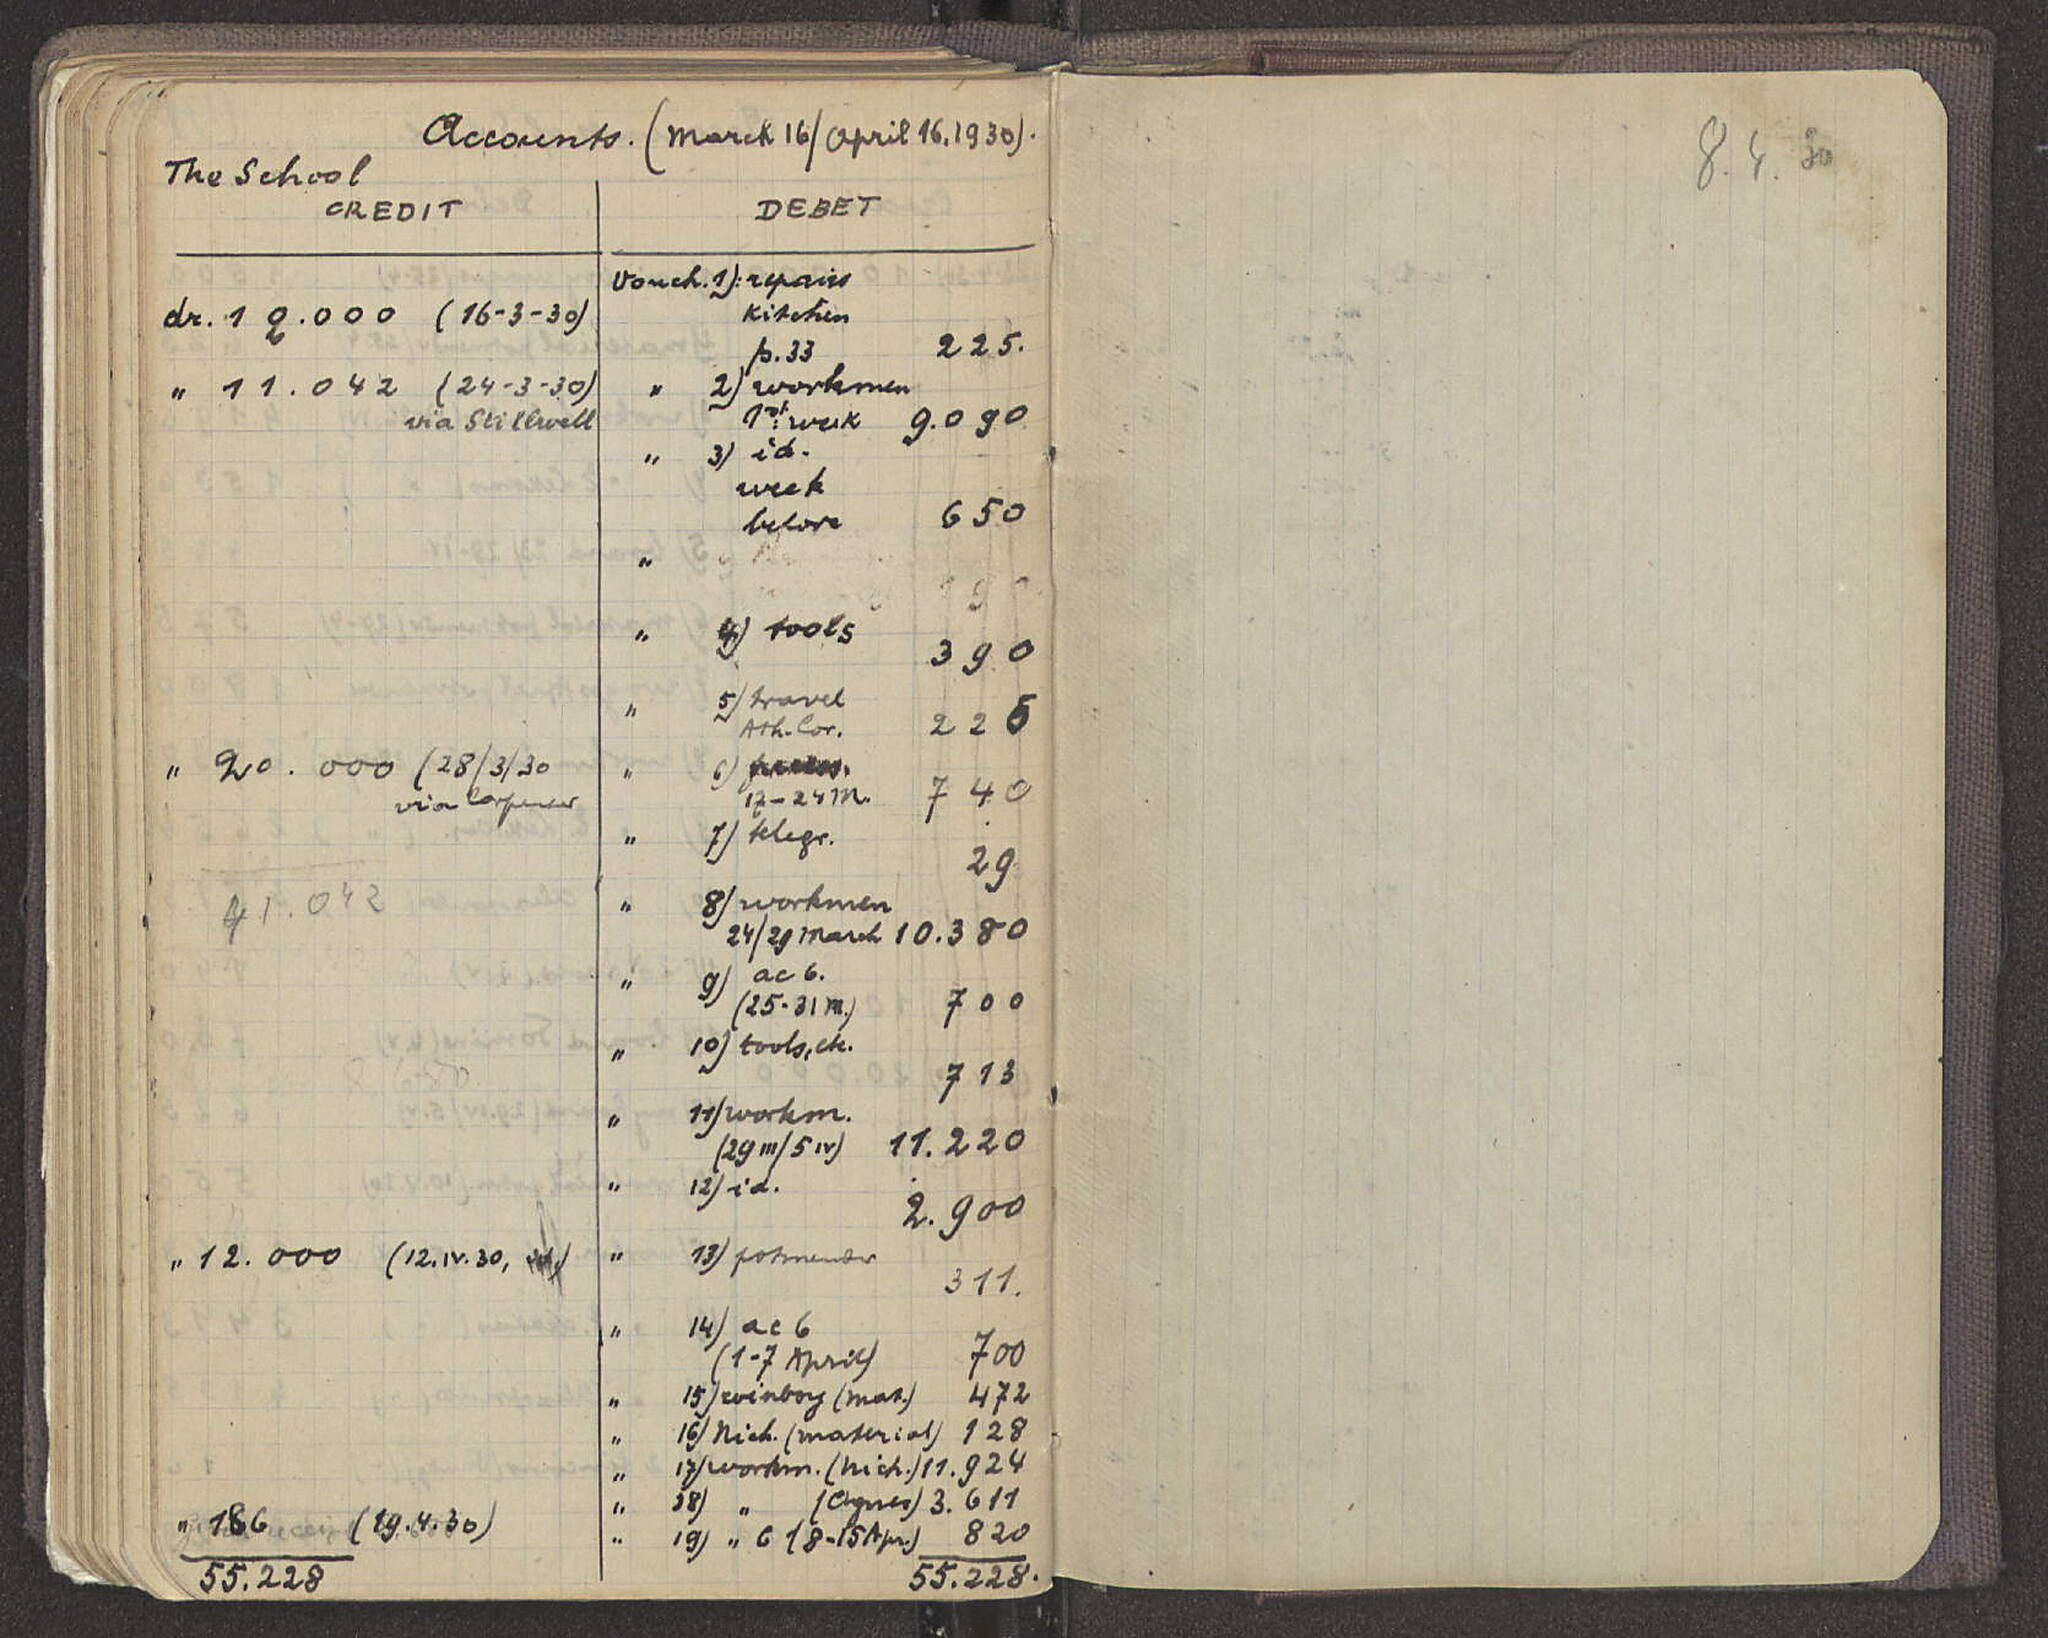 Accounts. (March 16/April 16.1930).
The School
CREDIT
DEBET
dr. 10.000 (16-3-30)
" 11.042 (24-3-30)
via Stillwell
" 20.000 (28/3/30
via Carpenter
41.042
" 12.000 (12.IV.30,
" 186 (19.4.30)
55.228
Vouch. 1): repairs
kitchen
p.33 225.
" 2) workmen
1st week 9.090
" 3) id.
week
before 650
"
" 4) tools
390
" 5) travel
Ath.-Cor. 225
" 6)
17-24 M. 740
" 7) telegr.
29
" 8) workmen
24/29 March 10.380
" 9) ac 6.
(25-31 M.) 700
" 10) tools, etc.
713
" 11) workm.
(29 III/5 IV) 11.220
" 12) id.
2.900
" 13) potmender
311.
" 14) ac 6
(1-7 April) 700
" 15) (mat.) 472
" 16) Nich. (material) 128
" 17) workm. (Nich.) 11.924
" 18) " (Agnes) 3.611
" 19) " 6 (8-15 Apr.) 820
55.228.
8.4.30